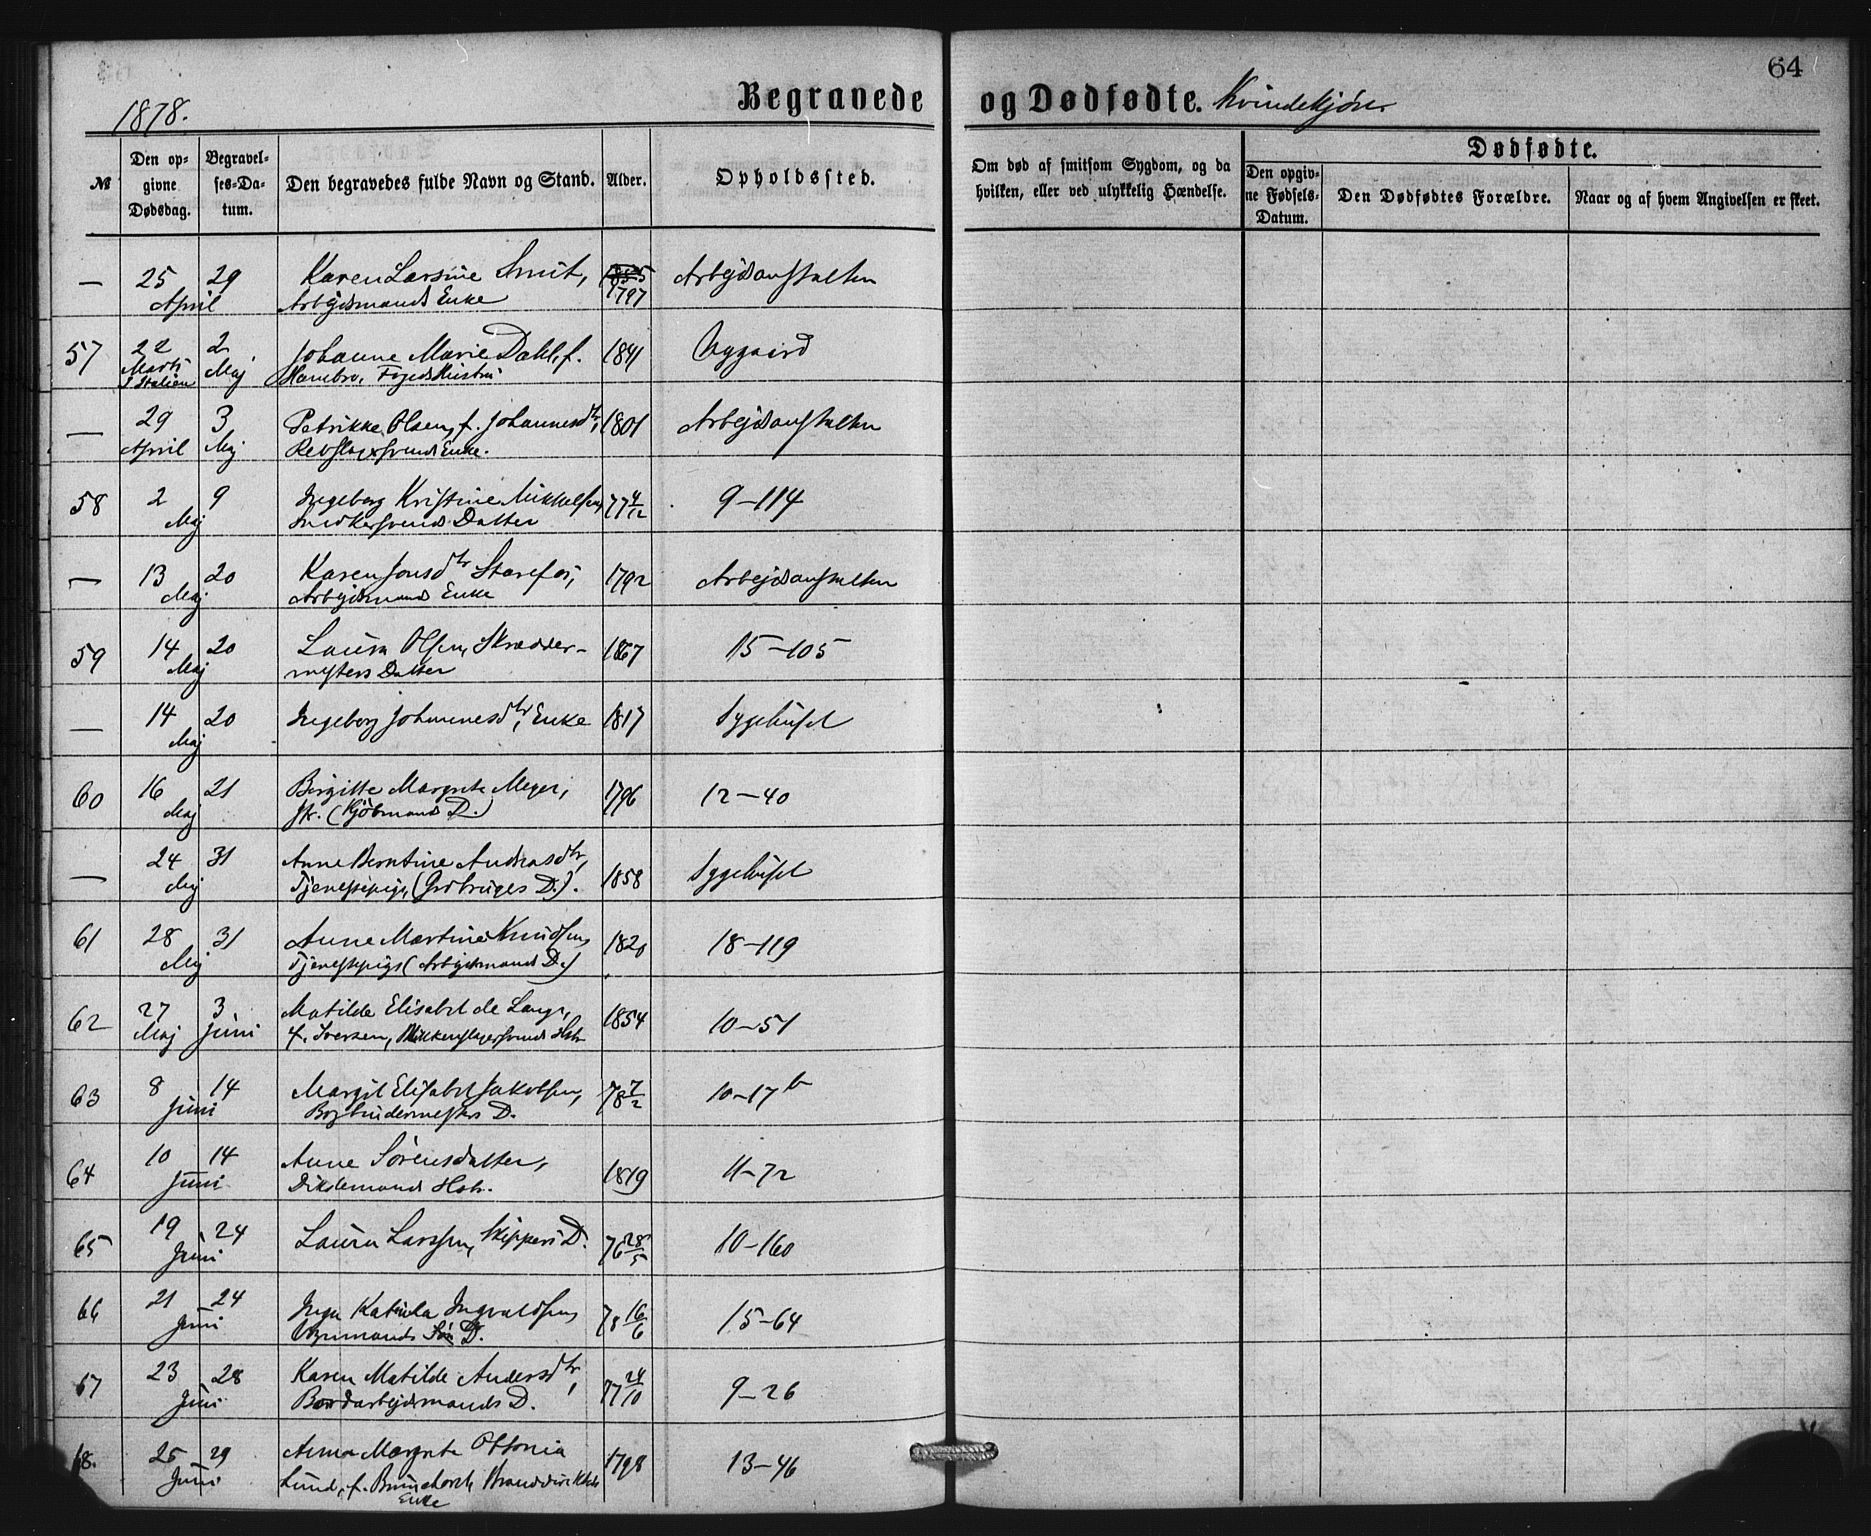 64
Begravede og Dødfødte. Kvindekjøn.
1878.
№
Den op-
givne
Dødsdag.
Begravel-
ses-Da-
tum.
Den begravedes fulde Navn og Stand.
Alder.
Opholdssted.
Om død af smitsom Sygdom, og da
hvilken, eller ved ulykkelig Hændelse.
Dødfødte.
Den opgiv-
ne Fødsels-
Datum.
Den Dødfødtes Forældre.
Naar og af hvem Angivelsen er skeet.
— 25 29 Karen Larsine Smit, 1855 Arbejdsanstalten
April Arbejdsmands Enke 1797
57 22 2 Johanne Marie Dahl, f. 1841 Nygaard
Marts Maj Hambro, Fogeds Hustru
I Italien
— 29 3 Petrikke Olsen, f. Johannesdtr, 1801 Arbejdsanstalten
April Maj Rebslagersvends Enke.
58 2 9 Ingeborg Kristine Mikkelsen 77 4/12 9–114
Maj Snedkersvends Datter
— 13 20 Karen Jonsdtr Starefos, 1792 Arbejdsanstalten
Maj Arbejdsmands Enke
59 14 20 Laura Olsen, Skrædder- 1867 15–105
Maj mesters Datter
— 14 20 Ingeborg Johannesdtr, Enke 1817 Sygehuset
Maj
60 16 21 Birgitte Margrete Meyer, 1796 12–40
Maj Fr. (Kjöbmands D.)
— 24 31 Anne Berntine Andreasdtr, 1858 Sygehuset
Maj Tjenestepige, (Grdbruges D.).
61 28 31 Anne Martine Knudsen, 1820 18–119
Maj Tjenestepige (Arbejdsmands D.)
62 27 3 Matilde Elisabet de Lange, 1854 10–51
Maj Juni f. Iversen, Blikkenslagersvends Hstr
63 8 14 Margit Elisabet Jakobsen, 78 7/2 10–17 b
Juni Bogbindermesters D.
64 10 14 Anne Sørensdatter, 1819 11–72
Juni Hstr.
65 19 24 Laura Larssen, Skippers D. 76 28/5 10–160
Juni
66 21 24 Inga Ingvaldsen, 78 16/6 15–64
Juni Sön D.
67 23 28 Karen Matilde Andersdtr, 77 24/10 9–26
Juni Bordarbejdsmands D.
68. 25 29 Anna Margrete Ottonia 1798 13–46
Juni Lund, f. Bruncharst, Branddirektörs
Enke